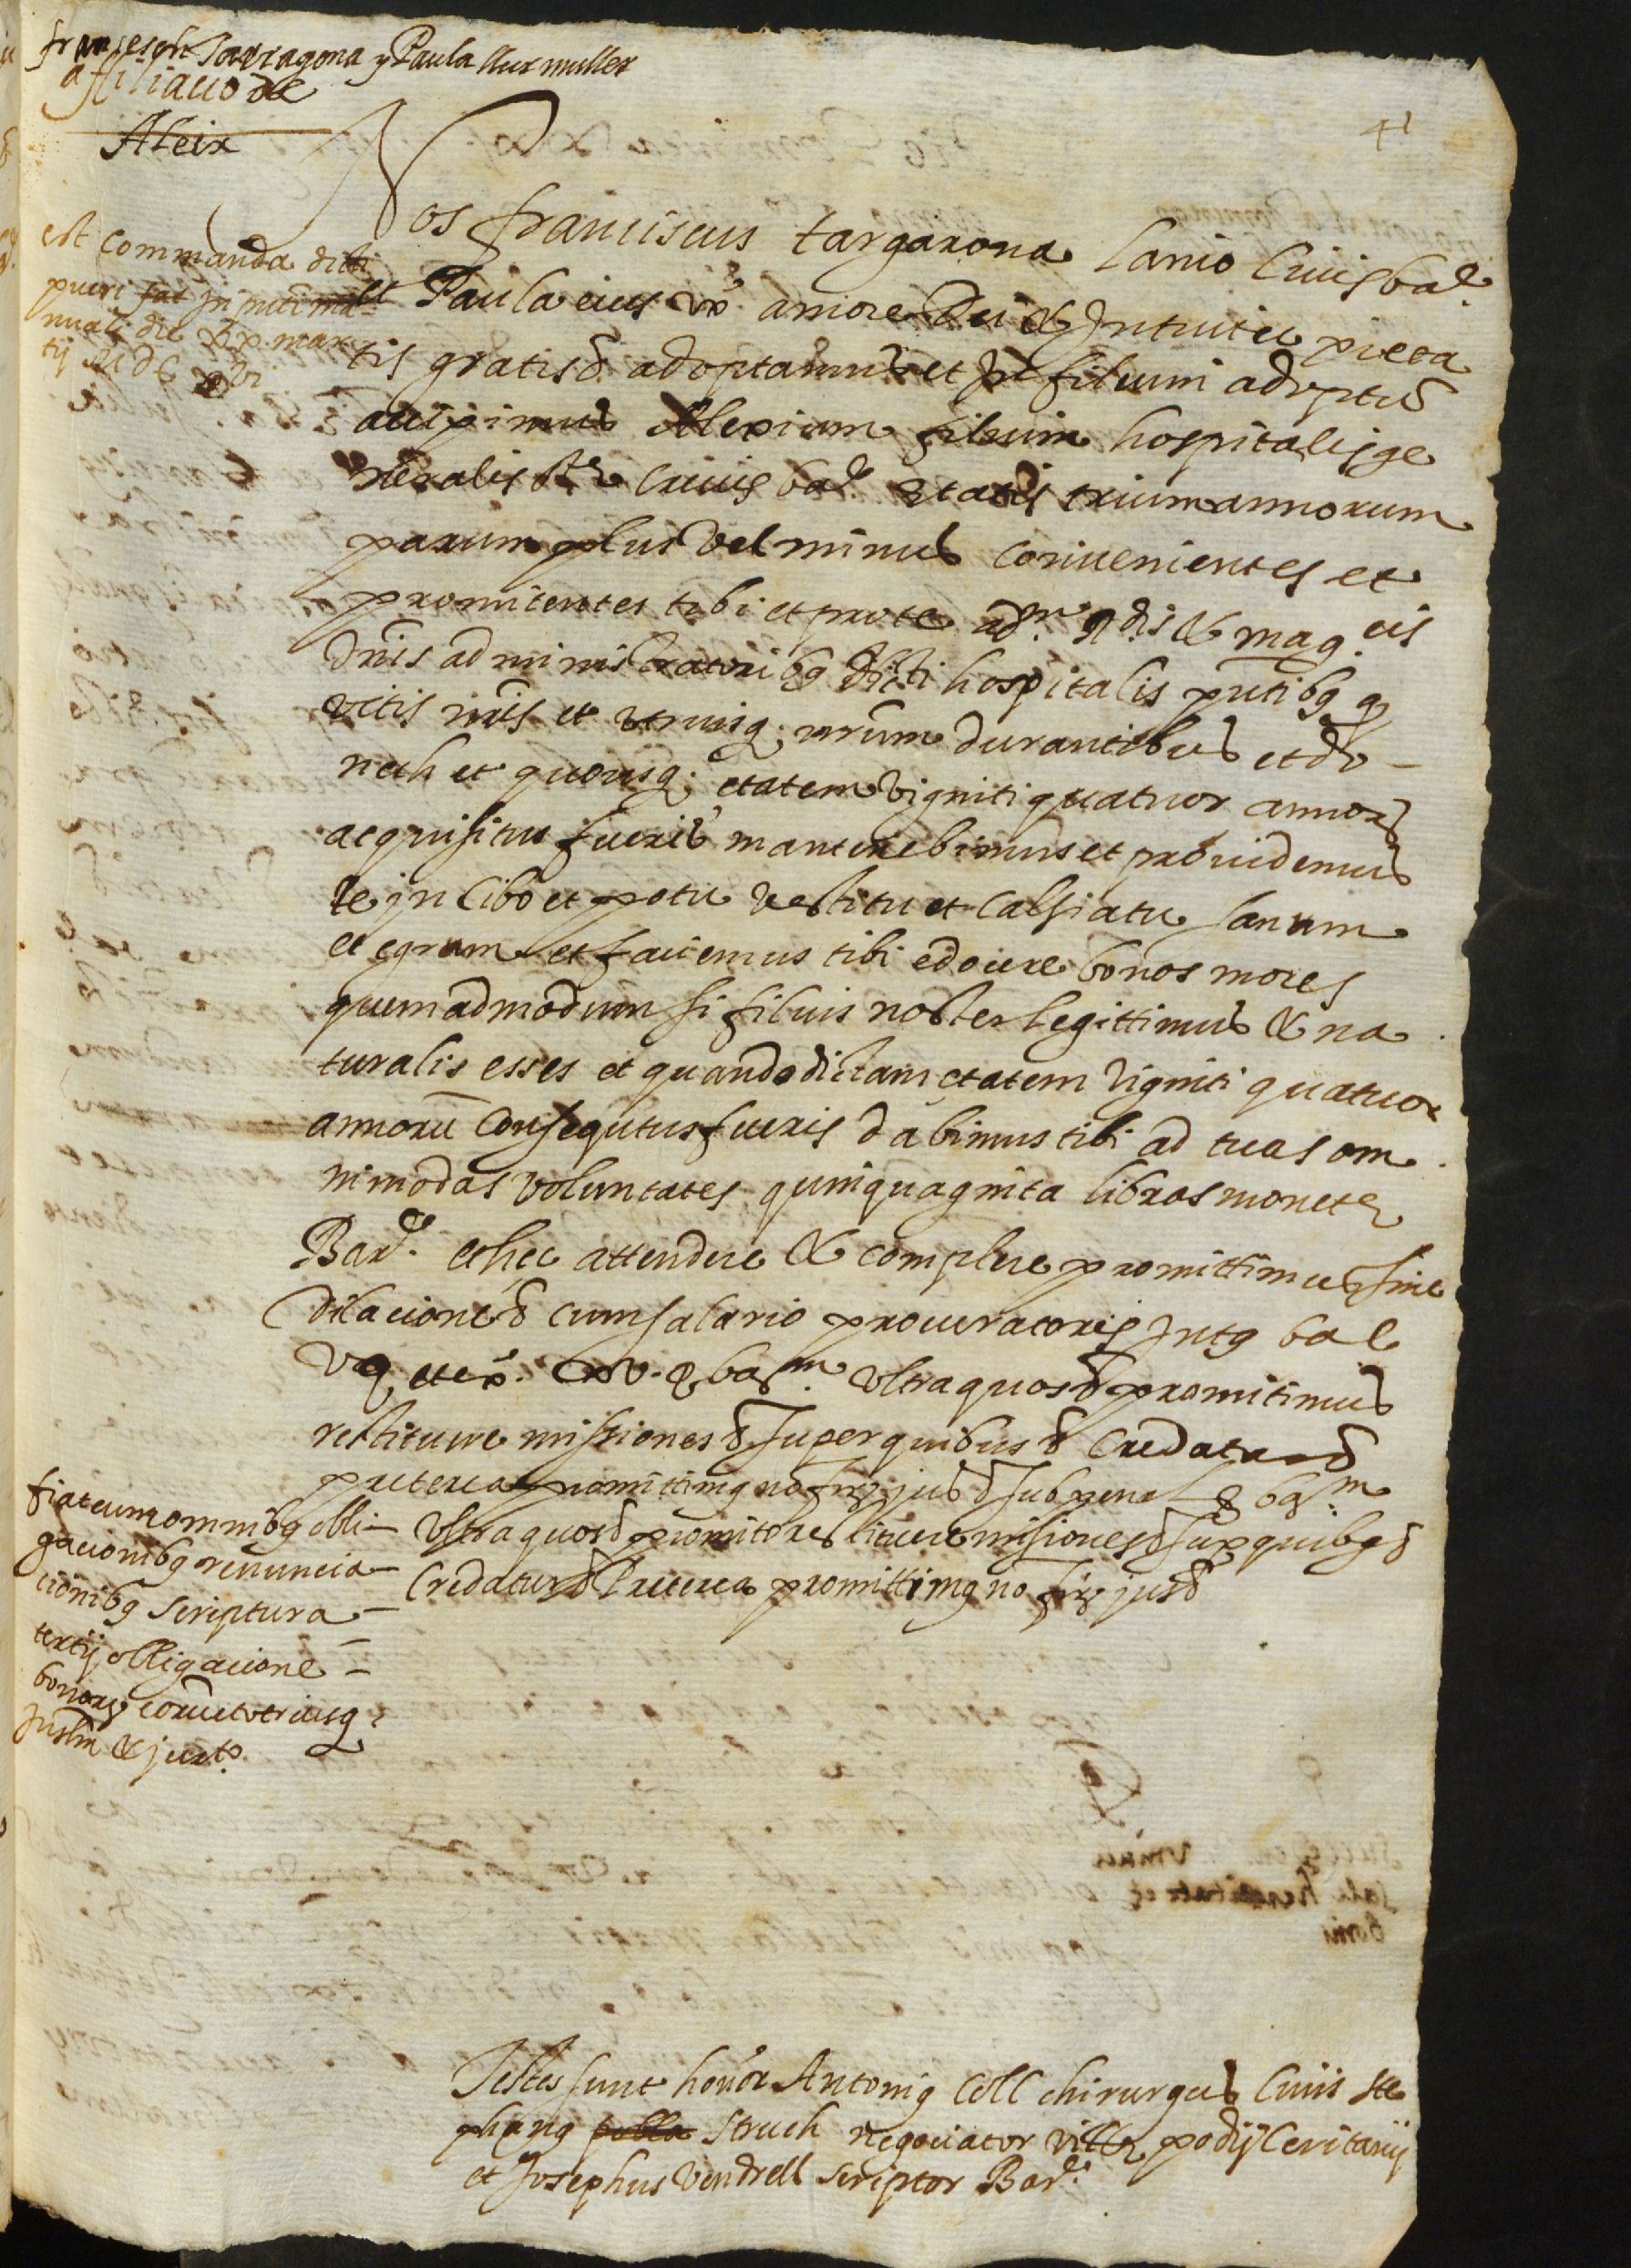 francesch Tarragona y Paula llur muller
afiliacio de
Aleix
41
est commanda dicti
pueri fat in meo ma-
nuali die xx mar
tij MDC xvi
Nos franciscus targarona lanio Civis bar.
et Paula eius ux.r amore Dei & Intuitu pieta
tis gratis & adoptamus et in filium adoptiu
accipimus Alexium filium hospitalis ge
neralis Ste Crucis bar. etatis trium annorum
parum plus vel minus convenientes et
promitentes tibi et pro te adm. Rdis & mag.cis
dnis administratoribus dicti hospitalis pntibus q
vitis nris et utriusq. nrum durantibus et do-
nech et quousq. etatem viginti quatuor annor
acquisitus fueris mantenebimus et providemus
te in Cibo et potu vestitu et Calsiatu sanum
et egrum et faciemus tibi edocere bonos mores
quemadmodum si filius noster legittimus & na
turalis esses et quando dictam etatem viginti quatuor
annorū Consequtus fueris dabimus tibi ad tuas om
nimodas voluntates quinquaginta libras monete
Bar.e et hec attendere & complere promittimus sine
dilacione & cum salario procuratoris Intus bar
v q et ex. x v. & bar.m ultra quos & promitimus
restituere missiones & super quibus & Credatur &
preterea promittimus no fir. jus & sub pena & bar.m
Ultra quos & promito restituere misiones & sup quibus &
Credatur & Preterea promittimus no fir. jus &
fiat cum omnibus obli-
gacionibus renuncia-
cionibus scriptura-
tertij obligacione-
bonorum eorum et utriusq.
Insolm & jurto.
Testes sunt honor Antonius Coll chirurgus Civis Ste
phanus Struch negociator ville podij Ceritanij
et Josephus Vendrell scriptor Bar.e